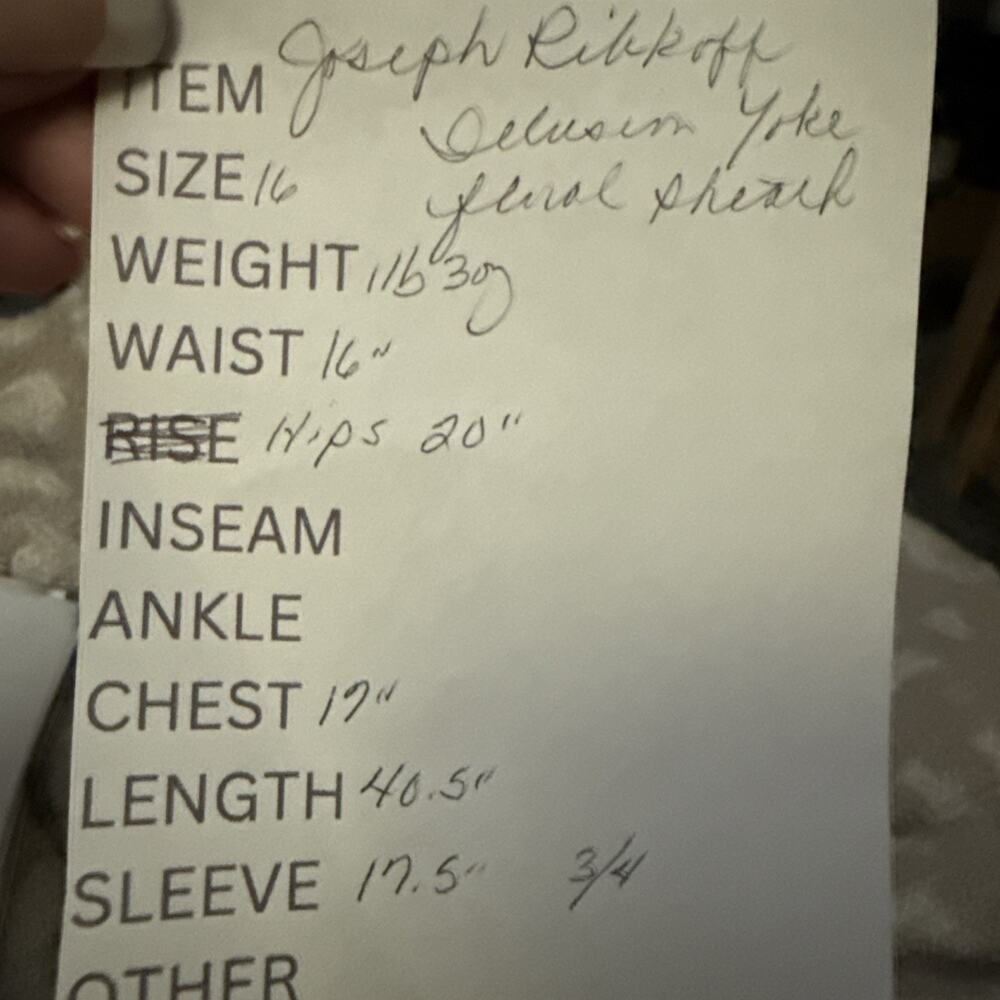 ITEM Joseph Ribkoff
Illusion Yoke
SIZE 16 floral sheath
WEIGHT 1lb 3oz
WAIST 16"
RISE Hips 20"
INSEAM
ANKLE
CHEST 17"
LENGTH 40.5"
SLEEVE 17.5" 3/4
OTHER